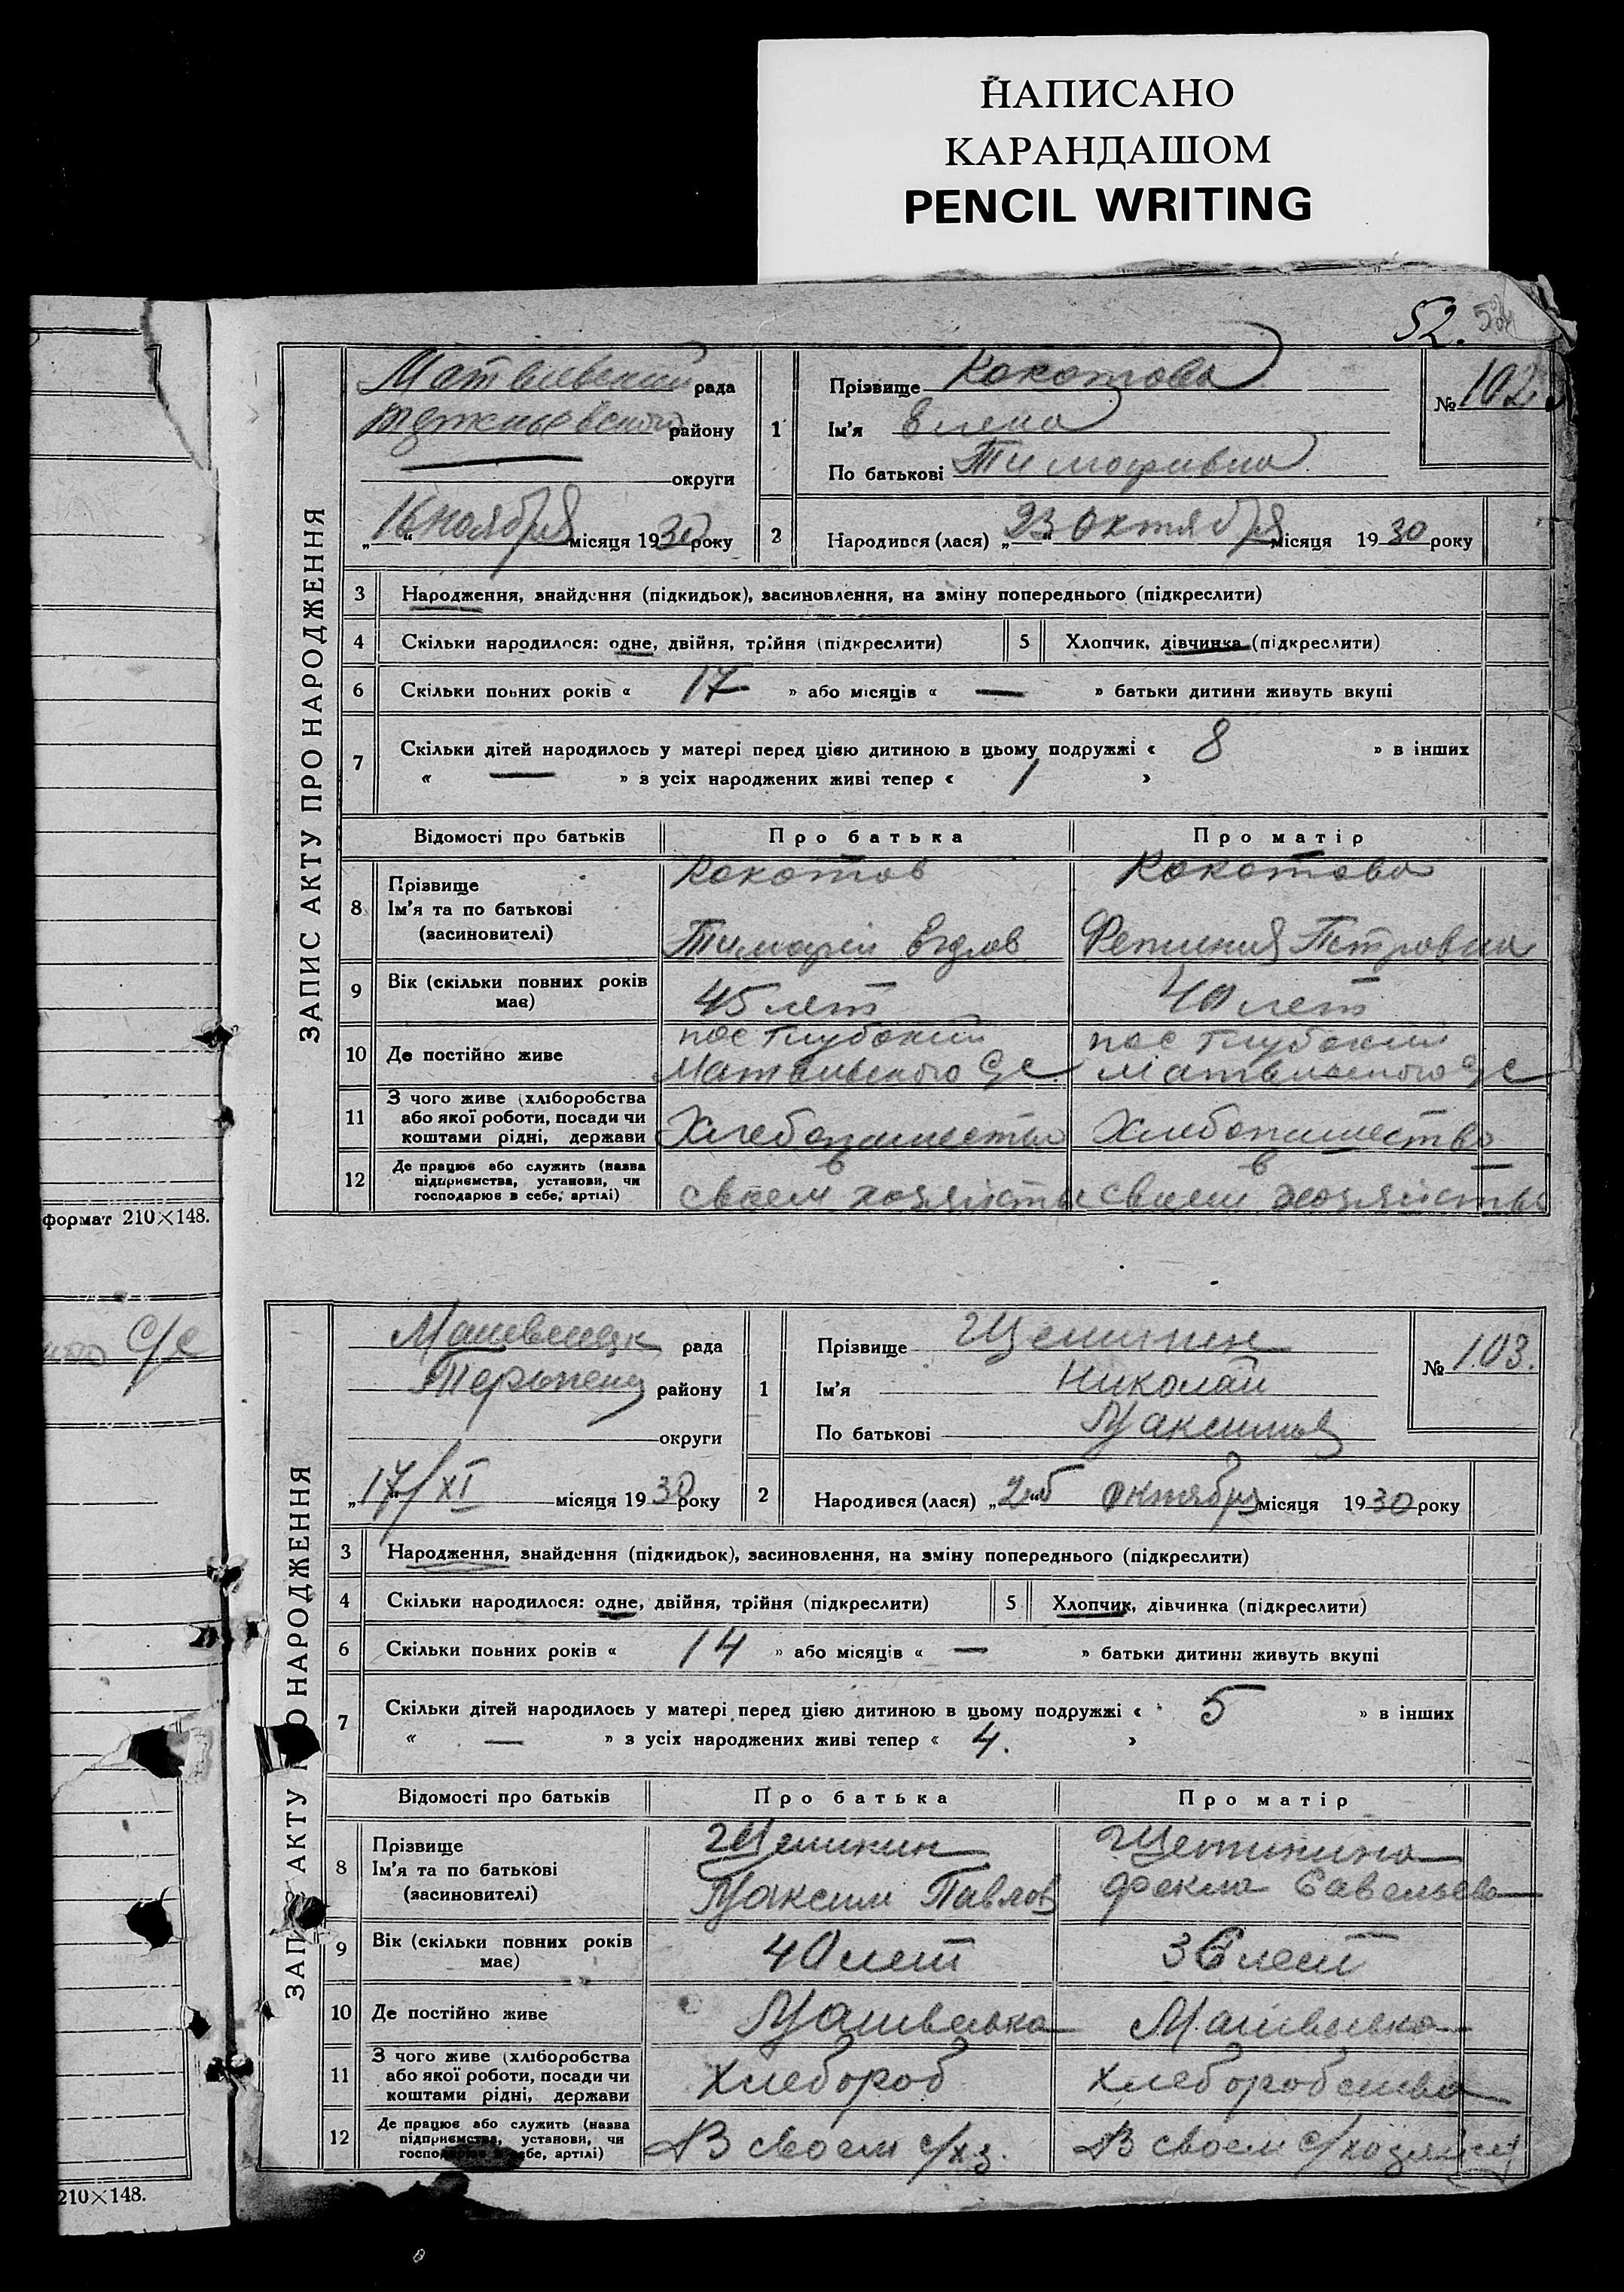 НАПИСАНО
КАРАНДАШОМ
PENCIL WRITING
52.
формат 210×148.
С/С
210×148.
ЗАПИС АКТУ ПРО НАРОДЖЕННЯ
рада
району
округи
„16“ ноября місяця 1930 року
1
Прізвище Кокотова
Ім’я Елена
По батькові Тимофивна
№ 102
2 Народився (лася) „23“ октября місяця 1930 року
3 Народження, знайдення (підкидьок), засиновлення, на зміну попереднього (підкреслити)
4 Скільки народилося: одне, двійня, трійня (підкреслити) 5 Хлопчик, дівчинка (підкреслити)
6 Скільки повних років « 17 » або місяців « — » батьки дитини живуть вкупі
7 Скільки дітей народилось у матері перед цією дитиною в цьому подружжі « 8 » в інших
« — » з усіх народжених живі тепер « 1 »
Відомості про батьків Про батька Про матір
8 Прізвище Кокотов Кокотова
Ім’я та по батькові
(засиновителі) Тимофей Петровна
9 Вік (скільки повних років має) 45 лет 40 лет
10 Де постійно живе пос Глубокий пос Глубокий
11 З чого живе (хліборобства
або якої роботи, посади чи
коштами рідні, держави Хлебопашество Хлебопашество
12 Де працює або служить (назва
підприємства, установи, чи
господарює в себе, артілі) в своем хозяйстве в своем хозяйстве
ЗАПИС АКТУ ПРО НАРОДЖЕННЯ
рада
району
округи
„17/XI місяця 1930 року
1
Прізвище
Ім’я Николай
По батькові Максимов
№ 103.
2 Народився (лася) „26“ октября місяця 1930 року
3 Народження, знайдення (підкидьок), засиновлення, на зміну попереднього (підкреслити)
4 Скільки народилося: одне, двійня, трійня (підкреслити) 5 Хлопчик, дівчинка (підкреслити)
6 Скільки повних років « 14 » або місяців « — » батьки дитини живуть вкупі
7 Скільки дітей народилось у матері перед цією дитиною в цьому подружжі « 5 » в інших
« — » з усіх народжених живі тепер « 4. »
Відомості про батьків Про батька Про матір
8 Прізвище
Ім’я та по батькові
(засиновителі) Максим Павлов Фекла Савельева
9 Вік (скільки повних років має) 40 лет 36 лет
10 Де постійно живе
11 З чого живе (хліборобства
або якої роботи, посади чи
коштами рідні, держави Хлебороб Хлеборобства
12 Де працює або служить (назва
підприємства, установи, чи
себе, артілі) В своем с/хз. В своем с/хозяйст